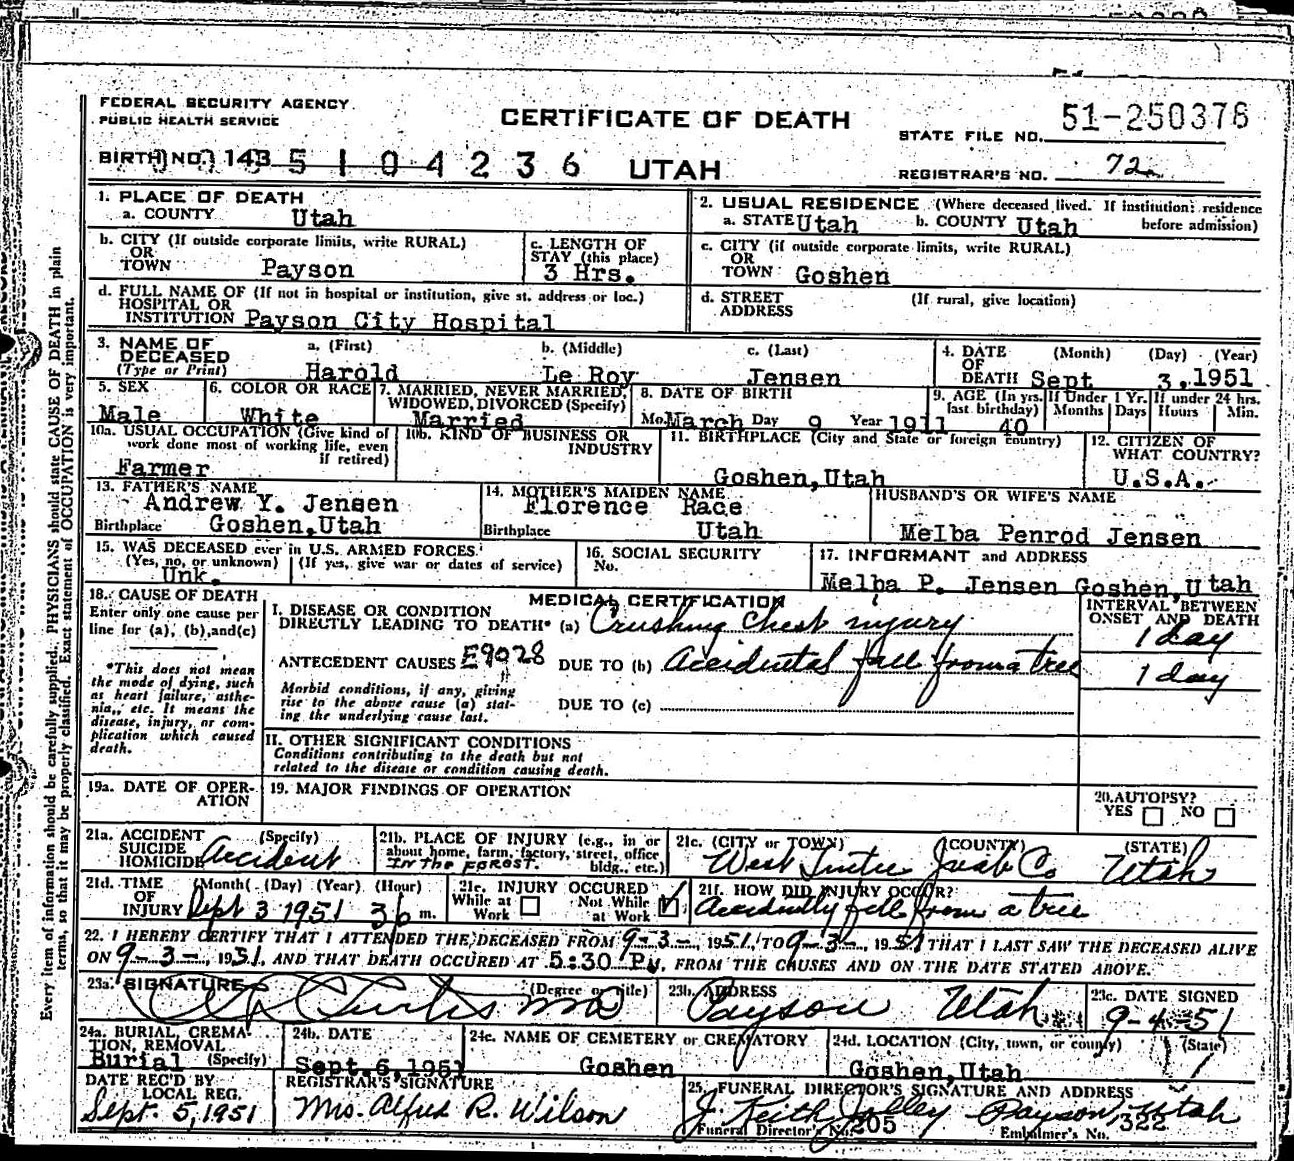 FEDERAL SECURITY AGENCY
PUBLIC HEALTH SERVICE
CERTIFICATE OF DEATH
STATE FILE NO. 51-250378
BIRTH NO. 143 5 1 0 4 2 3 6 UTAH
REGISTRAR'S NO. 72
Every item of information should be carefully supplied. PHYSICIANS should state CAUSE OF DEATH in plain
terms, so that it may be properly classified. Exact statement of OCCUPATION is very important.
1. PLACE OF DEATH
a. COUNTY Utah
2. USUAL RESIDENCE (Where deceased lived. If institution: residence before admission)
a. STATE Utah b. COUNTY Utah
b. CITY (If outside corporate limits, write RURAL)
OR
TOWN Payson
c. LENGTH OF
STAY (this place)
3 Hrs.
c. CITY (if outside corporate limits, write RURAL)
OR
TOWN Goshen
d. FULL NAME OF (If not in hospital or institution, give st. address or loc.)
HOSPITAL OR
INSTITUTION Payson City Hospital
d. STREET (If rural, give location)
ADDRESS
3. NAME OF
DECEASED
(Type or Print)
a. (First) b. (Middle) c. (Last)
Harold Le Roy Jensen
4. DATE (Month) (Day) (Year)
OF
DEATH Sept 3, 1951
5. SEX
Male
6. COLOR OR RACE
White
7. MARRIED, NEVER MARRIED,
WIDOWED, DIVORCED (Specify)
Married
8. DATE OF BIRTH
Mo. March Day 9 Year 1911
9. AGE (In yrs. last birthday)
40
If Under 1 Yr. If under 24 hrs.
Months Days Hours Min.
10a. USUAL OCCUPATION (Give kind of
work done most of working life, even
if retired)
Farmer
10b. KIND OF BUSINESS OR
INDUSTRY
11. BIRTHPLACE (City and State or foreign country)
Goshen, Utah
12. CITIZEN OF
WHAT COUNTRY?
U.S.A.
13. FATHER'S NAME
Andrew Y. Jensen
Birthplace Goshen, Utah
14. MOTHER'S MAIDEN NAME
Florence Race
Birthplace Utah
HUSBAND'S OR WIFE'S NAME
Melba Penrod Jensen
15. WAS DECEASED ever in U.S. ARMED FORCES?
(Yes, no, or unknown) (If yes, give war or dates of service)
Unk.
16. SOCIAL SECURITY
No.
17. INFORMANT and ADDRESS
Melba P. Jensen Goshen, Utah
18. CAUSE OF DEATH
Enter only one cause per
line for (a), (b), and (c)
*This does not mean
the mode of dying, such
as heart failure, asthe-
nia, etc. It means the
disease, injury, or com-
plication which caused
death.
MEDICAL CERTIFICATION
INTERVAL BETWEEN
ONSET AND DEATH
I. DISEASE OR CONDITION
DIRECTLY LEADING TO DEATH* (a) Crushing chest injury 1 day
ANTECEDENT CAUSES E9028 DUE TO (b) Accidental fall from a tree 1 day
Morbid conditions, if any, giving
rise to the above cause (a) stat-
ing the underlying cause last.
DUE TO (c)
II. OTHER SIGNIFICANT CONDITIONS
Conditions contributing to the death but not
related to the disease or condition causing death.
19a. DATE OF OPER-
ATION
19. MAJOR FINDINGS OF OPERATION
20. AUTOPSY?
YES NO
21a. ACCIDENT (Specify)
SUICIDE
HOMICIDE Accident
21b. PLACE OF INJURY (e.g., in or
about home, farm, factory, street, office
bldg., etc.)
In the Forest.
21c. (CITY or TOWN) (COUNTY) (STATE)
West Tintic Juab Co Utah
21d. TIME (Month) (Day) (Year) (Hour)
OF
INJURY Sept 3 1951 m.
21e. INJURY OCCURED
While at Work Not While at Work
21f. HOW DID INJURY OCCUR?
Accidently fell from a tree
22. I HEREBY CERTIFY THAT I ATTENDED THE DECEASED FROM 9-3-, 1951, TO 9-3-, 1951 THAT I LAST SAW THE DECEASED ALIVE
ON 9-3-, 1951, AND THAT DEATH OCCURED AT 5:30 P M, FROM THE CAUSES AND ON THE DATE STATED ABOVE.
23a. SIGNATURE (Degree or title)
Curtis MD
23b. ADDRESS
Payson Utah
23c. DATE SIGNED
9-4-51
24a. BURIAL, CREMA-
TION, REMOVAL
(Specify)
Burial
24b. DATE
Sept. 6, 1951
24c. NAME OF CEMETERY or CREMATORY
Goshen
24d. LOCATION (City, town, or county) (State)
Goshen, Utah
DATE REC'D BY
LOCAL REG.
Sept. 5, 1951
REGISTRAR'S SIGNATURE
Mrs. Alfred R. Wilson
25. FUNERAL DIRECTOR'S SIGNATURE AND ADDRESS
J. Keith Jolley Payson, Utah
Funeral Director's No. 205 Embalmer's No. 322